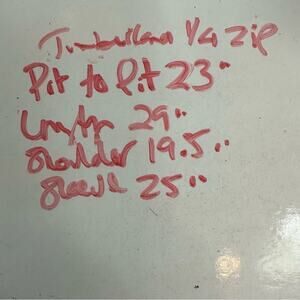 Timberland 1/4 zip
Pit to Pit 23"
Length 29"
Shoulder 19.5"
Sleeve 25"